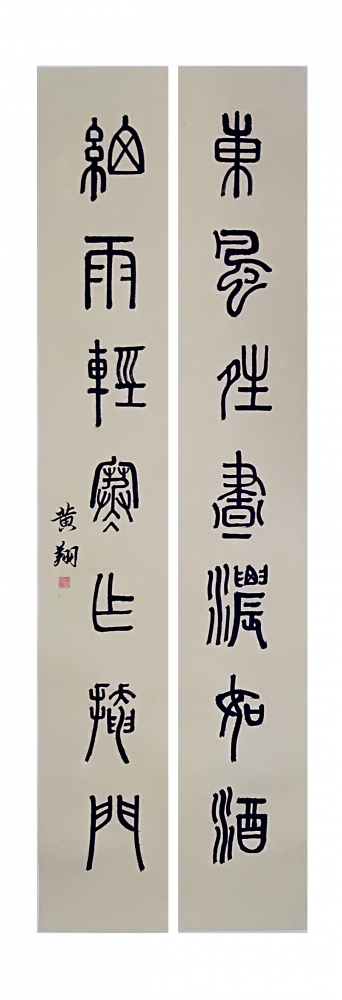 東風往晝濃如酒
細雨輕寒乍掩門
黃翔